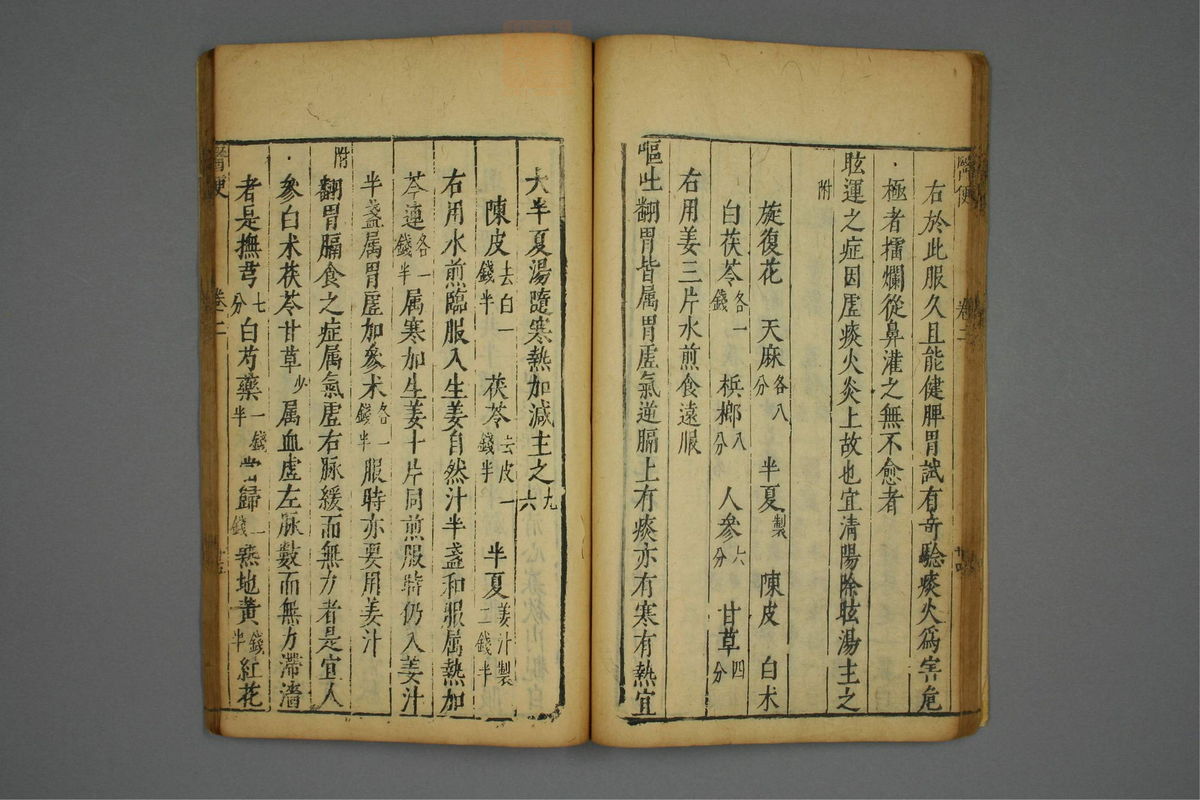 醫便
卷二
右於此服久且能健脾胃試有奇驗痰火為害危
極者擂爛從鼻灌之無不愈者
眩運之症因虛痰火炎上故也宜清陽除眩湯主之
附
旋復花 天麻各八分 半夏製 陳皮 白朮
白茯苓各一錢 梹榔八分 人參六分 甘草四分
右用姜三片水煎食遠服
嘔吐翻胃皆属胃虛氣逆膈上有痰亦有寒有熱宜
大半夏湯隨寒熱加減主之九六
陳皮去白一錢半 茯苓去皮一錢半 半夏姜汁製二錢半
右用水煎臨服入生姜自然汁半盞和服属熱加
芩連各一錢半属寒加生姜十片同煎服時仍入姜汁
半盞属胃虛加參朮各一錢半服時亦要用姜汁
附
翻胃膈食之症属氣虛右脉緩而無力者是宜人
參白朮茯苓甘草少属血虛左脉數而無力滯濇
者是撫芎七分白芍藥一錢半當歸一錢熟地黃錢半紅花
醫便
卷二